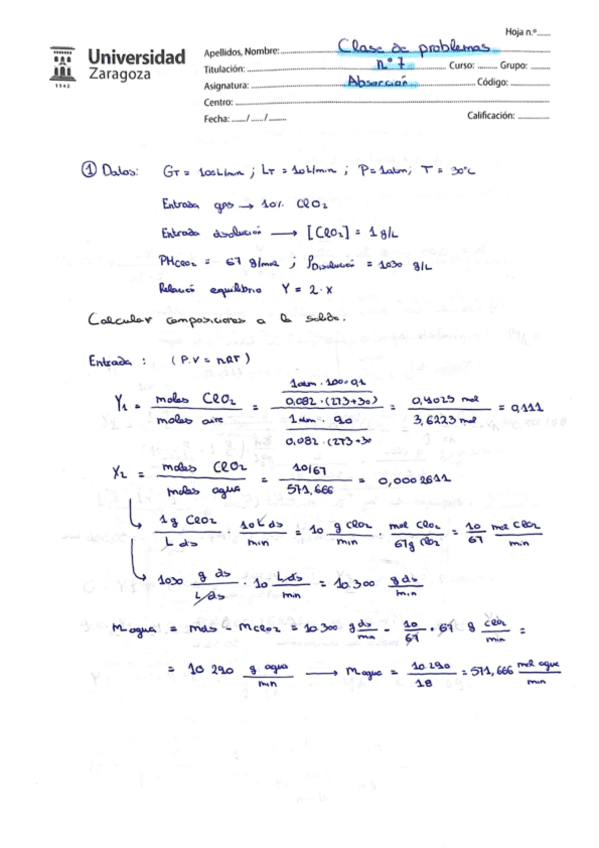 Hoja n.º
Universidad
Zaragoza
1542
Apellidos, Nombre: Clase de problemas
Titulación: nº 7 Curso: Grupo:
Asignatura: Absorción Código:
Centro:
Fecha: / / Calificación:
① Datos: GT = 100 L/min ; LT = 10 L/min ; P = 1 atm ; T = 30ºC
Entrada gas → 10% ClO2
Entrada disolución → [ClO2] = 1 g/L
PMClO2 = 67 g/mol ; ρDisolución = 1030 g/L
Relación equilibrio Y = 2·X
Calcular composiciones a la salida.
Entrada : (P.V = nRT)
Y1 = moles ClO2 / moles aire = (1atm · 100·0,1 / 0,082 · (273+30)) / (1atm · 90 / 0,082 · (273+30) = 0,4025 mol / 3,6223 mol = 0,111
X2 = moles ClO2 / moles agua = 10/67 / 571,666 = 0,0002611
1g ClO2 / L ds · 10 L ds / min = 10 g ClO2 / min · mol ClO2 / 67g ClO2 = 10/67 mol ClO2 / min
1030 g ds / L ds · 10 L ds / min = 10.300 g ds / min
m agua = mds - mClO2 = 10 300 g ds/min - 10/67 · 67 g ClO2/min =
= 10 290 g agua / min → m agua = 10 290 / 18 = 571,666 mol agua / min